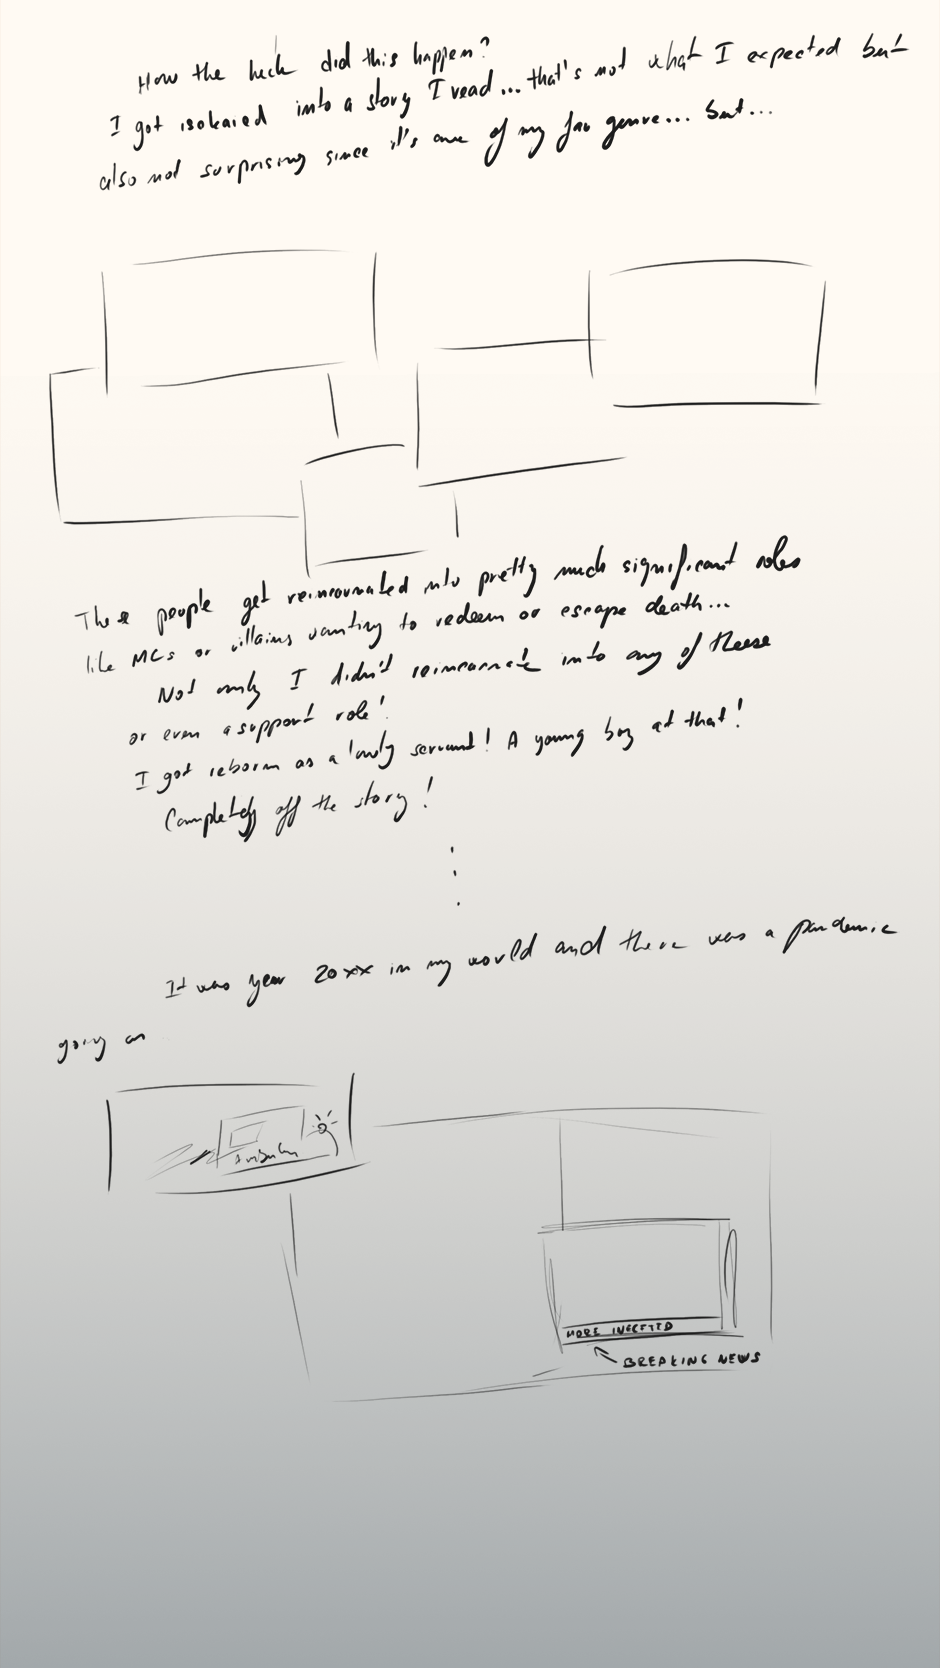 How the heck did this happen?
I got isekaied into a story I read... that's not what I expected but
also not surprising since it's one of my fav genre... but...
These people get reincarnated into pretty much significant roles
like MCs or villains wanting to redeem or escape death...
Not only I didn't reincarnate into any of these
or even a support role!
I got reborn as a lowly servant! A young boy at that!
Completely off the story!
It was year 20xx in my world and there was a pandemic
going on
MORE INFECTED
BREAKING NEWS